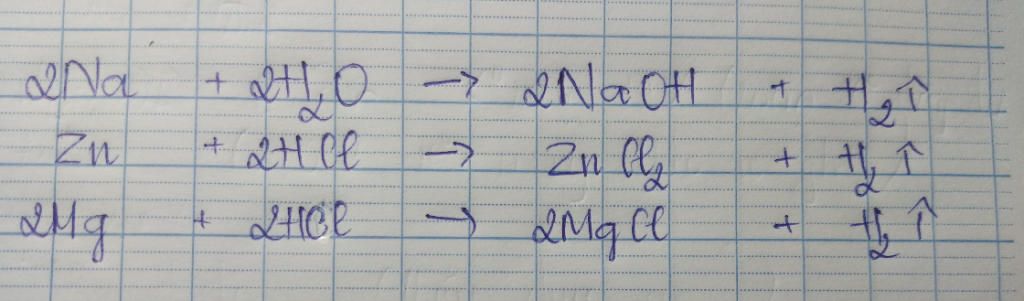 2Na + 2H₂O → 2NaOH + H₂↑
Zn + 2HCl → ZnCl₂ + H₂↑
2Mg + 2HCl → 2MgCl + H₂↑